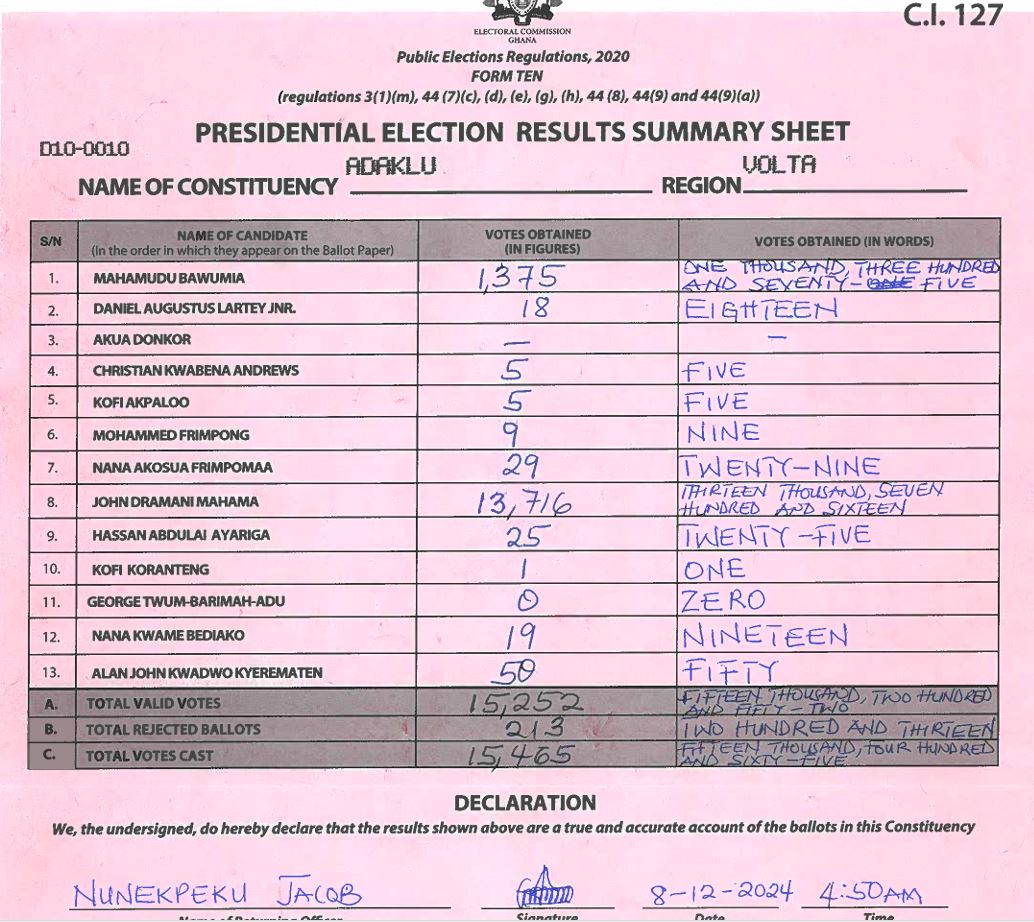 C.I. 127
ELECTORAL COMMISSION
GHANA
Public Elections Regulations, 2020
FORM TEN
(regulations 3(1)(m), 44 (7)(c), (d), (e), (g), (h), 44 (8), 44(9) and 44(9)(a))
PRESIDENTIAL ELECTION RESULTS SUMMARY SHEET
D10-0010
NAME OF CONSTITUENCY ADAKLU REGION VOLTA
S/N NAME OF CANDIDATE (In the order in which they appear on the Ballot Paper) VOTES OBTAINED (IN FIGURES) VOTES OBTAINED (IN WORDS)
1. MAHAMUDU BAWUMIA 1,375 ONE THOUSAND, THREE HUNDRED AND SEVENTY-FIVE
2. DANIEL AUGUSTUS LARTEY JNR. 18 EIGHTEEN
3. AKUA DONKOR — —
4. CHRISTIAN KWABENA ANDREWS 5 FIVE
5. KOFI AKPALOO 5 FIVE
6. MOHAMMED FRIMPONG 9 NINE
7. NANA AKOSUA FRIMPOMAA 29 TWENTY-NINE
8. JOHN DRAMANI MAHAMA 13,716 THIRTEEN THOUSAND, SEVEN HUNDRED AND SIXTEEN
9. HASSAN ABDULAI AYARIGA 25 TWENTY-FIVE
10. KOFI KORANTENG 1 ONE
11. GEORGE TWUM-BARIMAH-ADU 0 ZERO
12. NANA KWAME BEDIAKO 19 NINETEEN
13. ALAN JOHN KWADWO KYEREMATEN 50 FIFTY
A. TOTAL VALID VOTES 15,252 FIFTEEN THOUSAND, TWO HUNDRED AND FIFTY-TWO
B. TOTAL REJECTED BALLOTS 213 TWO HUNDRED AND THIRTEEN
C. TOTAL VOTES CAST 15,465 FIFTEEN THOUSAND, FOUR HUNDRED AND SIXTY-FIVE
DECLARATION
We, the undersigned, do hereby declare that the results shown above are a true and accurate account of the ballots in this Constituency
NUNEKPEKU JACOB 8-12-2024 4:50AM
Name of Returning Officer Signature Date Time